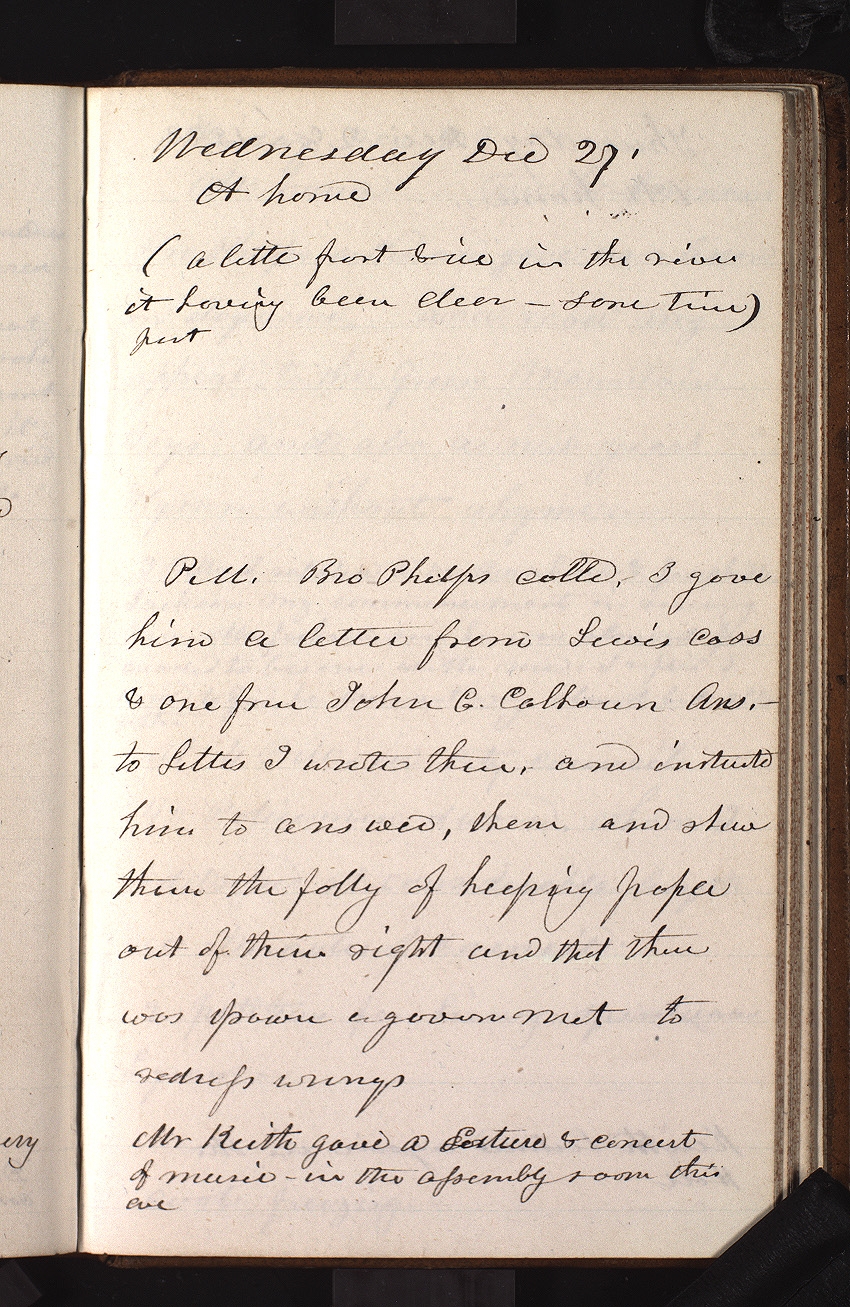 Wednesday Dec 27.
At home
( a little frost & ice in the river
it having been cleer — some time)
past
P.M. Bro Phelps calld, I gave
him a letter from Lewis Cass
& one from John C. Calhoun Ans.-
to Letters I wrote them, and instructed
him to answed, them and shew
them the folly of keeping people
out of their right and that there
was power in government to
redress wrongs
Mr Keith gave a Lecture & concert
of music - in the assembly room this
eve
ery